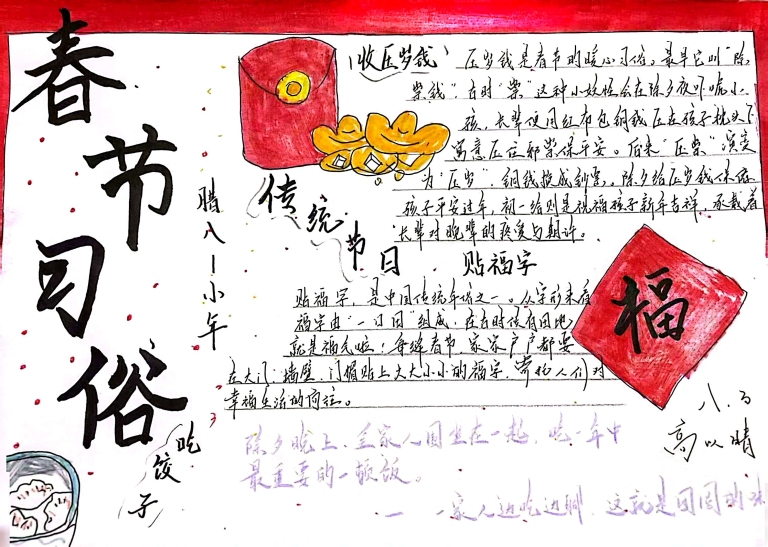 春节习俗
腊八—小年
收压岁钱
压岁钱是春节的暖心习俗。最早它叫“压
祟钱”，古时“祟”这种小妖怪会在除夕夜吓唬小
孩，长辈便用红布包铜钱压在孩子枕头下
寓意压住邪祟保平安。后来“压祟”演变
为“压岁”，铜钱换成钞票。除夕给压岁钱保佑
孩子平安过年，初一给则是祝福孩子新年吉祥，承载着
长辈对晚辈的疼爱与期许。
传统节日
贴福字
贴福字，是中国传统年俗之一。从字形来看
福字由“一口田”组成，在古时候有田地
就是福气啦！每逢春节，家家户户都要
在大门、墙壁、门楣贴上大大小小的福字，寄托人们对
幸福生活的向往。
福
八.3
高以晴
吃饺子
除夕晚上，全家人围坐在一起，吃一年中
最重要的一顿饭。
一家人边吃边聊，这就是团圆的味